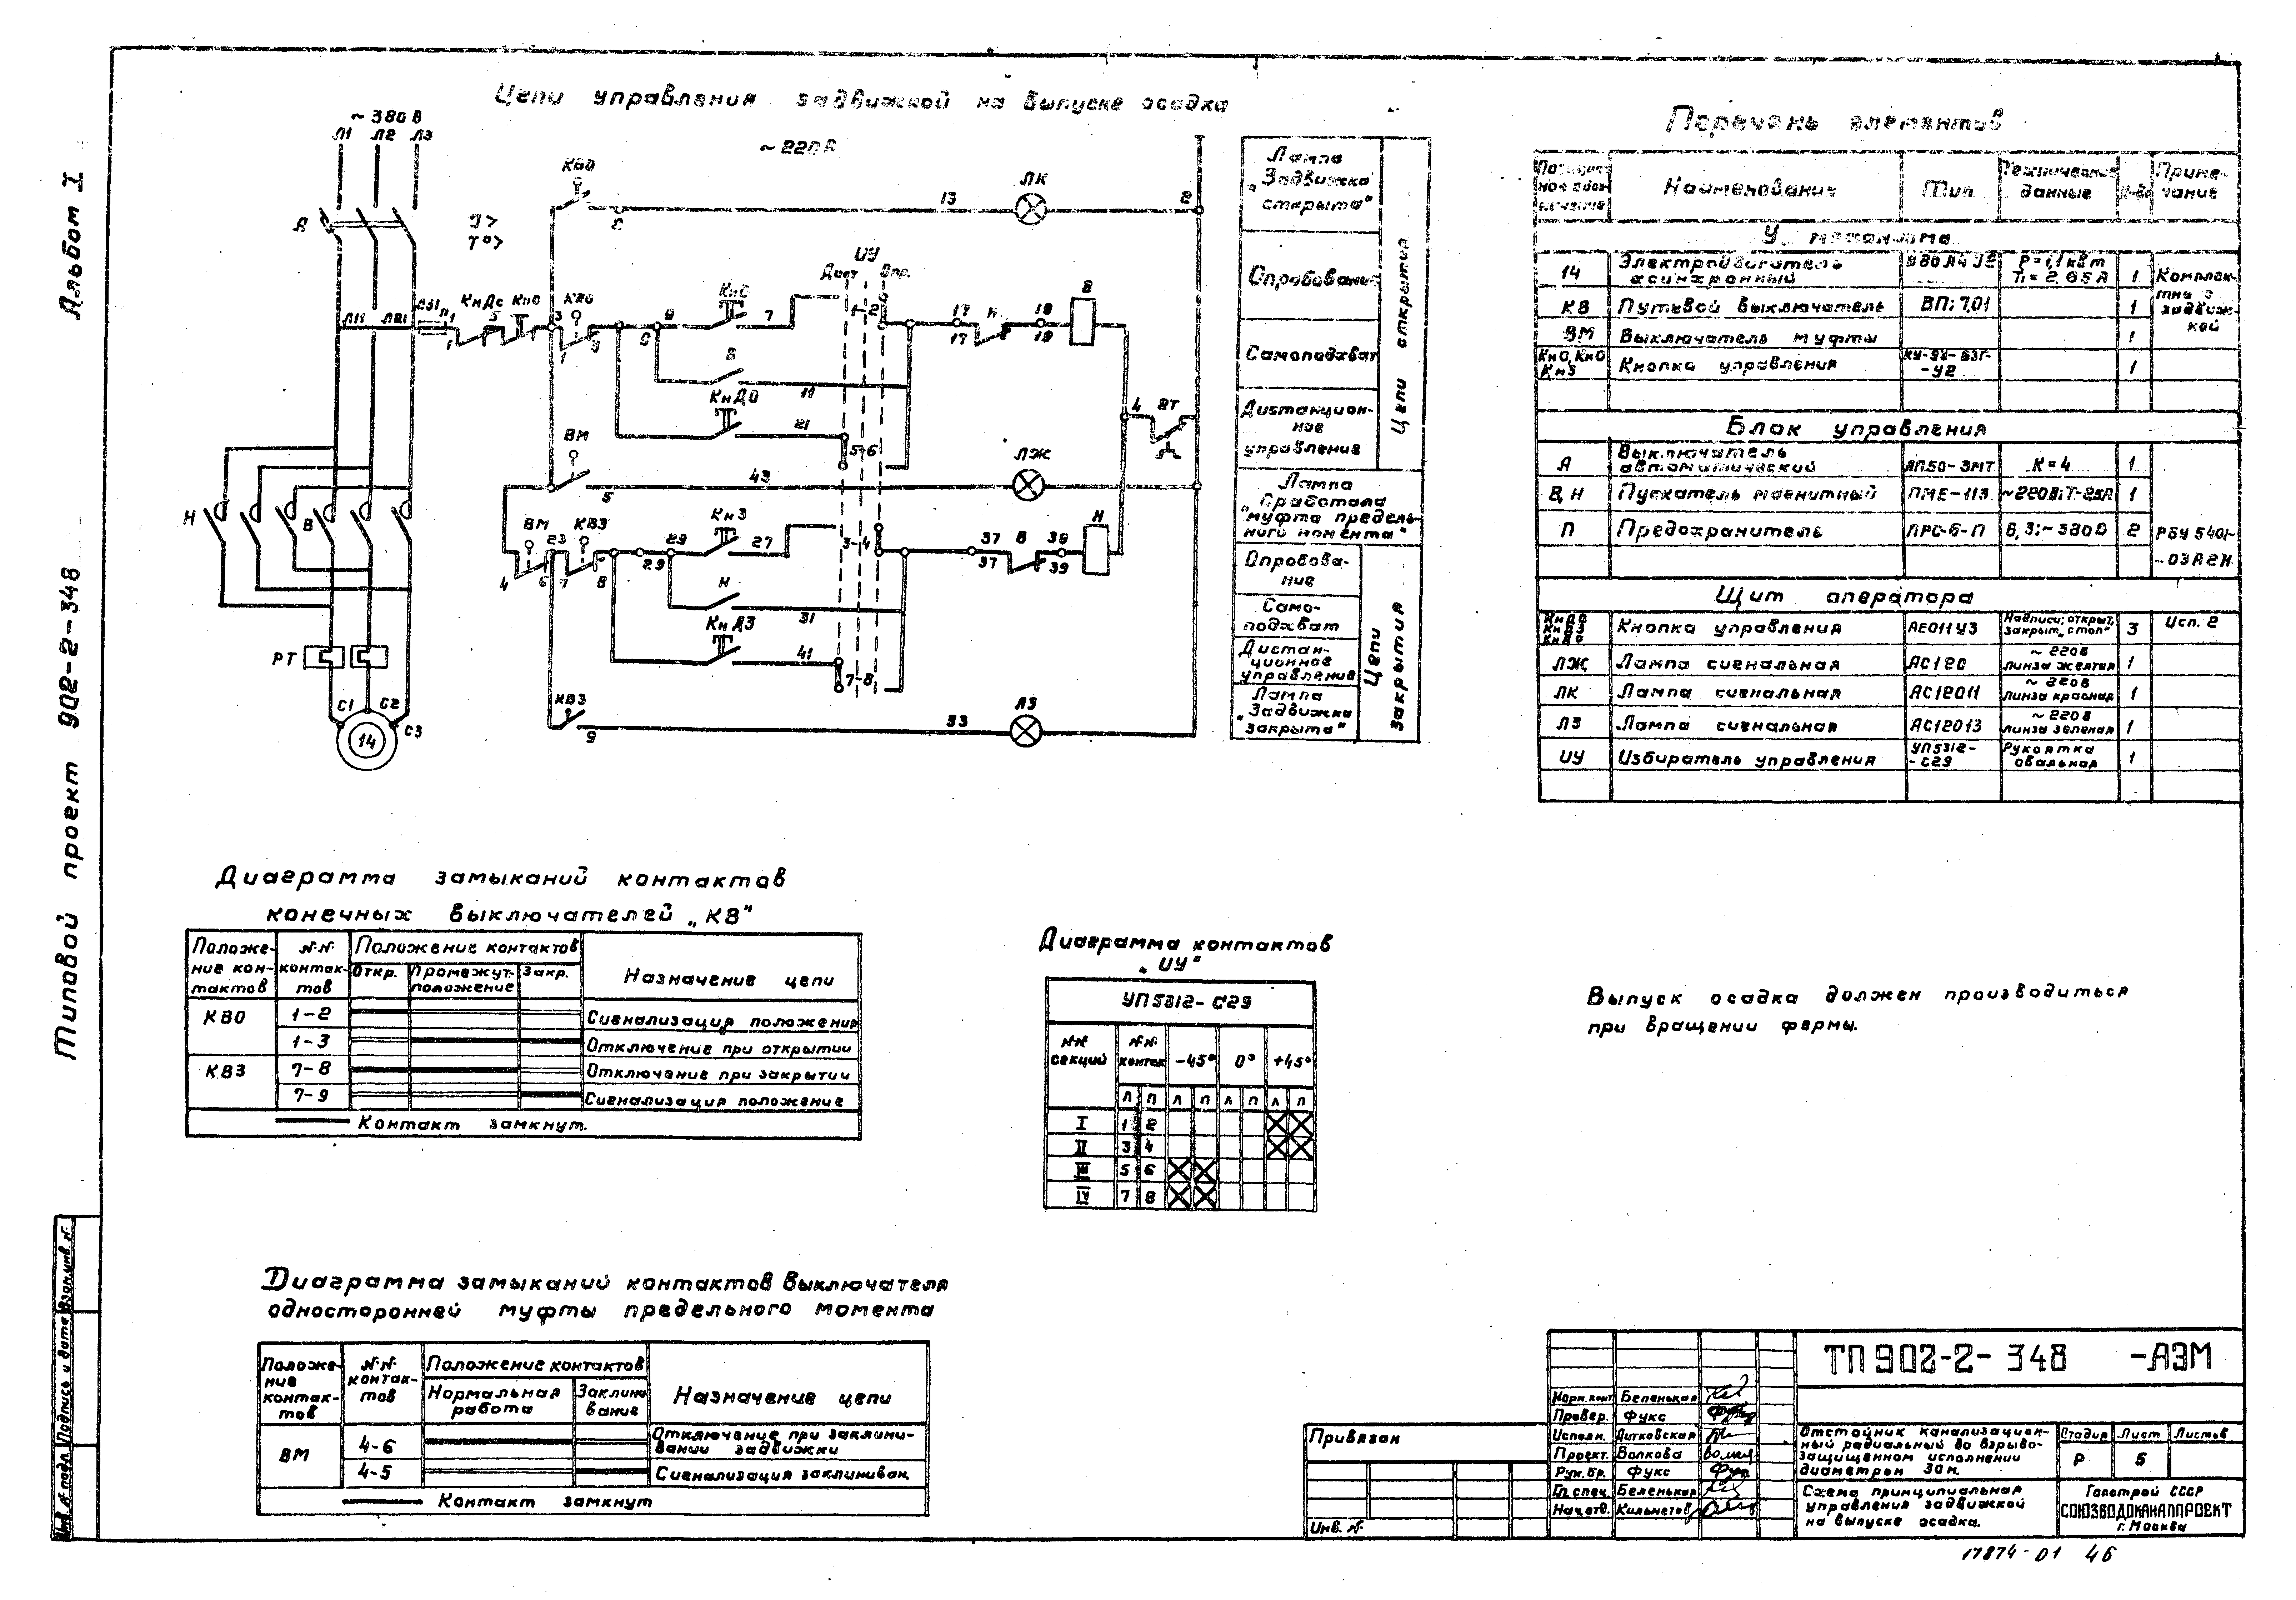 Альбом I
Типовой проект 902-2-348
Цепи управления задвижкой на выпуске осадка
~ 380 В
Л1 Л2 Л3
~ 220 В
А
I>
T°>
КВО
13
ЛК
2
Л11 Л21 Л31 П1
КнДс
КнС
КВО
КнО
ИУ
Дист
Опр.
1-2
1 5 3 1 3 9 7
17 Н 19 В
17 19
В
11
КнДО
21
5-6
4 РТ
ВМ
5
43
ЛЖ
Н
В
ВМ 23 КВЗ
4 6 7 8
29 КнЗ 27
29
3-4
37 В 39 Н
37 39
Н
31
КнДЗ
41
7-8
РТ
С1 С2 С3
14
КВЗ
9
33
ЛЗ
Лампа
„Задвижка
открыта"
Опробование
Самоподхват
Дистанцион-
ное
управление
Цепи открытия
Лампа
Сработала
"муфта предель-
ного момента"
Опробова-
ние
Само-
подхват
Дистан-
ционное
управление
Лампа
„Задвижка
закрыта"
Цепи закрытия
Перечень элементов
Наименование
Тип
Технические данные
Приме-чание
У механизма
14 Электродвигатель асинхронный Р=1,1 кВт 1 Комплек-
КВ Путевой выключатель 1 тно с
ВМ Выключатель муфты 1 задвиж-
КнО, КнЗ Кнопка управления 1 кой
Блок управления
А Выключатель автоматический АП50-3МТ К=4 1
В, Н Пускатель магнитный ПМЕ-113 ~220В; 1
П Предохранитель ПРС-6-П ~380В 2 РБУ 5401-
-03А2Н
Щит оператора
КнДО КнДЗ Кнопка управления АЕ011У3 Надписи: „открыт, закрыт, стоп" 3 Исп. 2
ЛЖ Лампа сигнальная АС120 ~ 220В линза желтая 1
ЛК Лампа сигнальная АС12011 ~ 220В линза красная 1
ЛЗ Лампа сигнальная АС12013 ~ 220В линза зеленая 1
ИУ Избиратель управления УП5312-С29 Рукоятка овальная 1
Диаграмма замыканий контактов
конечных выключателей „КВ"
Положе-ние кон-тактов
№№ контак-тов
Положение контактов
Откр. Промежут. положение Закр.
Назначение цепи
КВО 1-2 Сигнализация положения
1-3 Отключение при открытии
КВЗ 7-8 Отключение при закрытии
7-9 Сигнализация положение
Контакт замкнут.
Диаграмма контактов
„ИУ"
УП5312-С29
№№ секций №№ контак -45° 0° +45°
Л П Л П Л П Л П
I 1 2
II 3 4
III 5 6
IV 7 8
Выпуск осадка должен производиться
при вращении фермы.
Диаграмма замыканий контактов выключателя
односторонней муфты предельного момента
Положе-ние контак-тов
№№ контак-тов
Положение контактов
Нормальная работа
Заклини-вание
Назначение цепи
ВМ 4-6 Отключение при заклини-вании задвижки
4-5 Сигнализация заклиниван.
Контакт замкнут
Взам. инв. №
Подпись и дата
Инв. № подл.
Привязан
Инв. №
ТП 902-2-348 -АЭМ
Норм. конт Беленькая
Провер. Фукс
Исполн. Дитковская
Проект. Волкова
Рук. бр. Фукс
Гл. спец. Беленькая
Нач. отд.
Отстойник канализацион-
ный радиальный во взрыво-
защищенном исполнении
диаметром 30м.
Стадия Лист Листов
Р 5
Схема принципиальная
управления задвижкой
на выпуске осадка.
Госстрой СССР
СОЮЗВОДОКАНАЛПРОЕКТ
г. Москва
17874-01 46